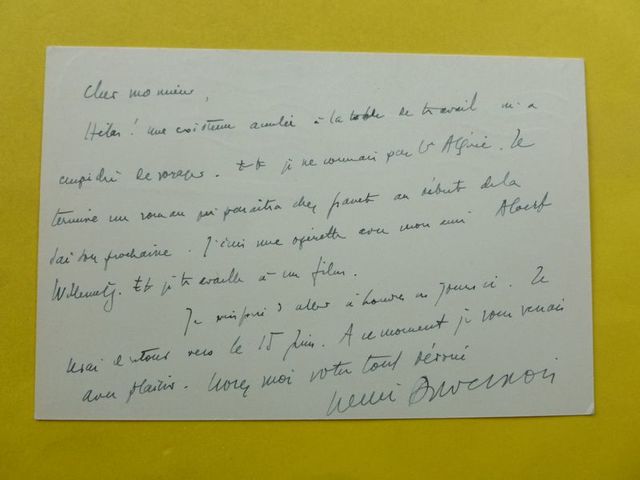 Cher monsieur,
Hélas! une existence annulée à la table de travail m'a
empêché de voyager. Et je ne connais pas l'Algérie. Je
termine un roman qui paraîtra chez au début de la
saison prochaine. J'écris une opérette avec mon ami Albert
Willemetz. Et je travaille à un film.
Je suis à Londres ces jours ci. Je
serai de retour vers le 15 Juin. A ce moment je vous verrais
avec plaisir. Croyez moi votre tout dévoué
Henri Duvernois